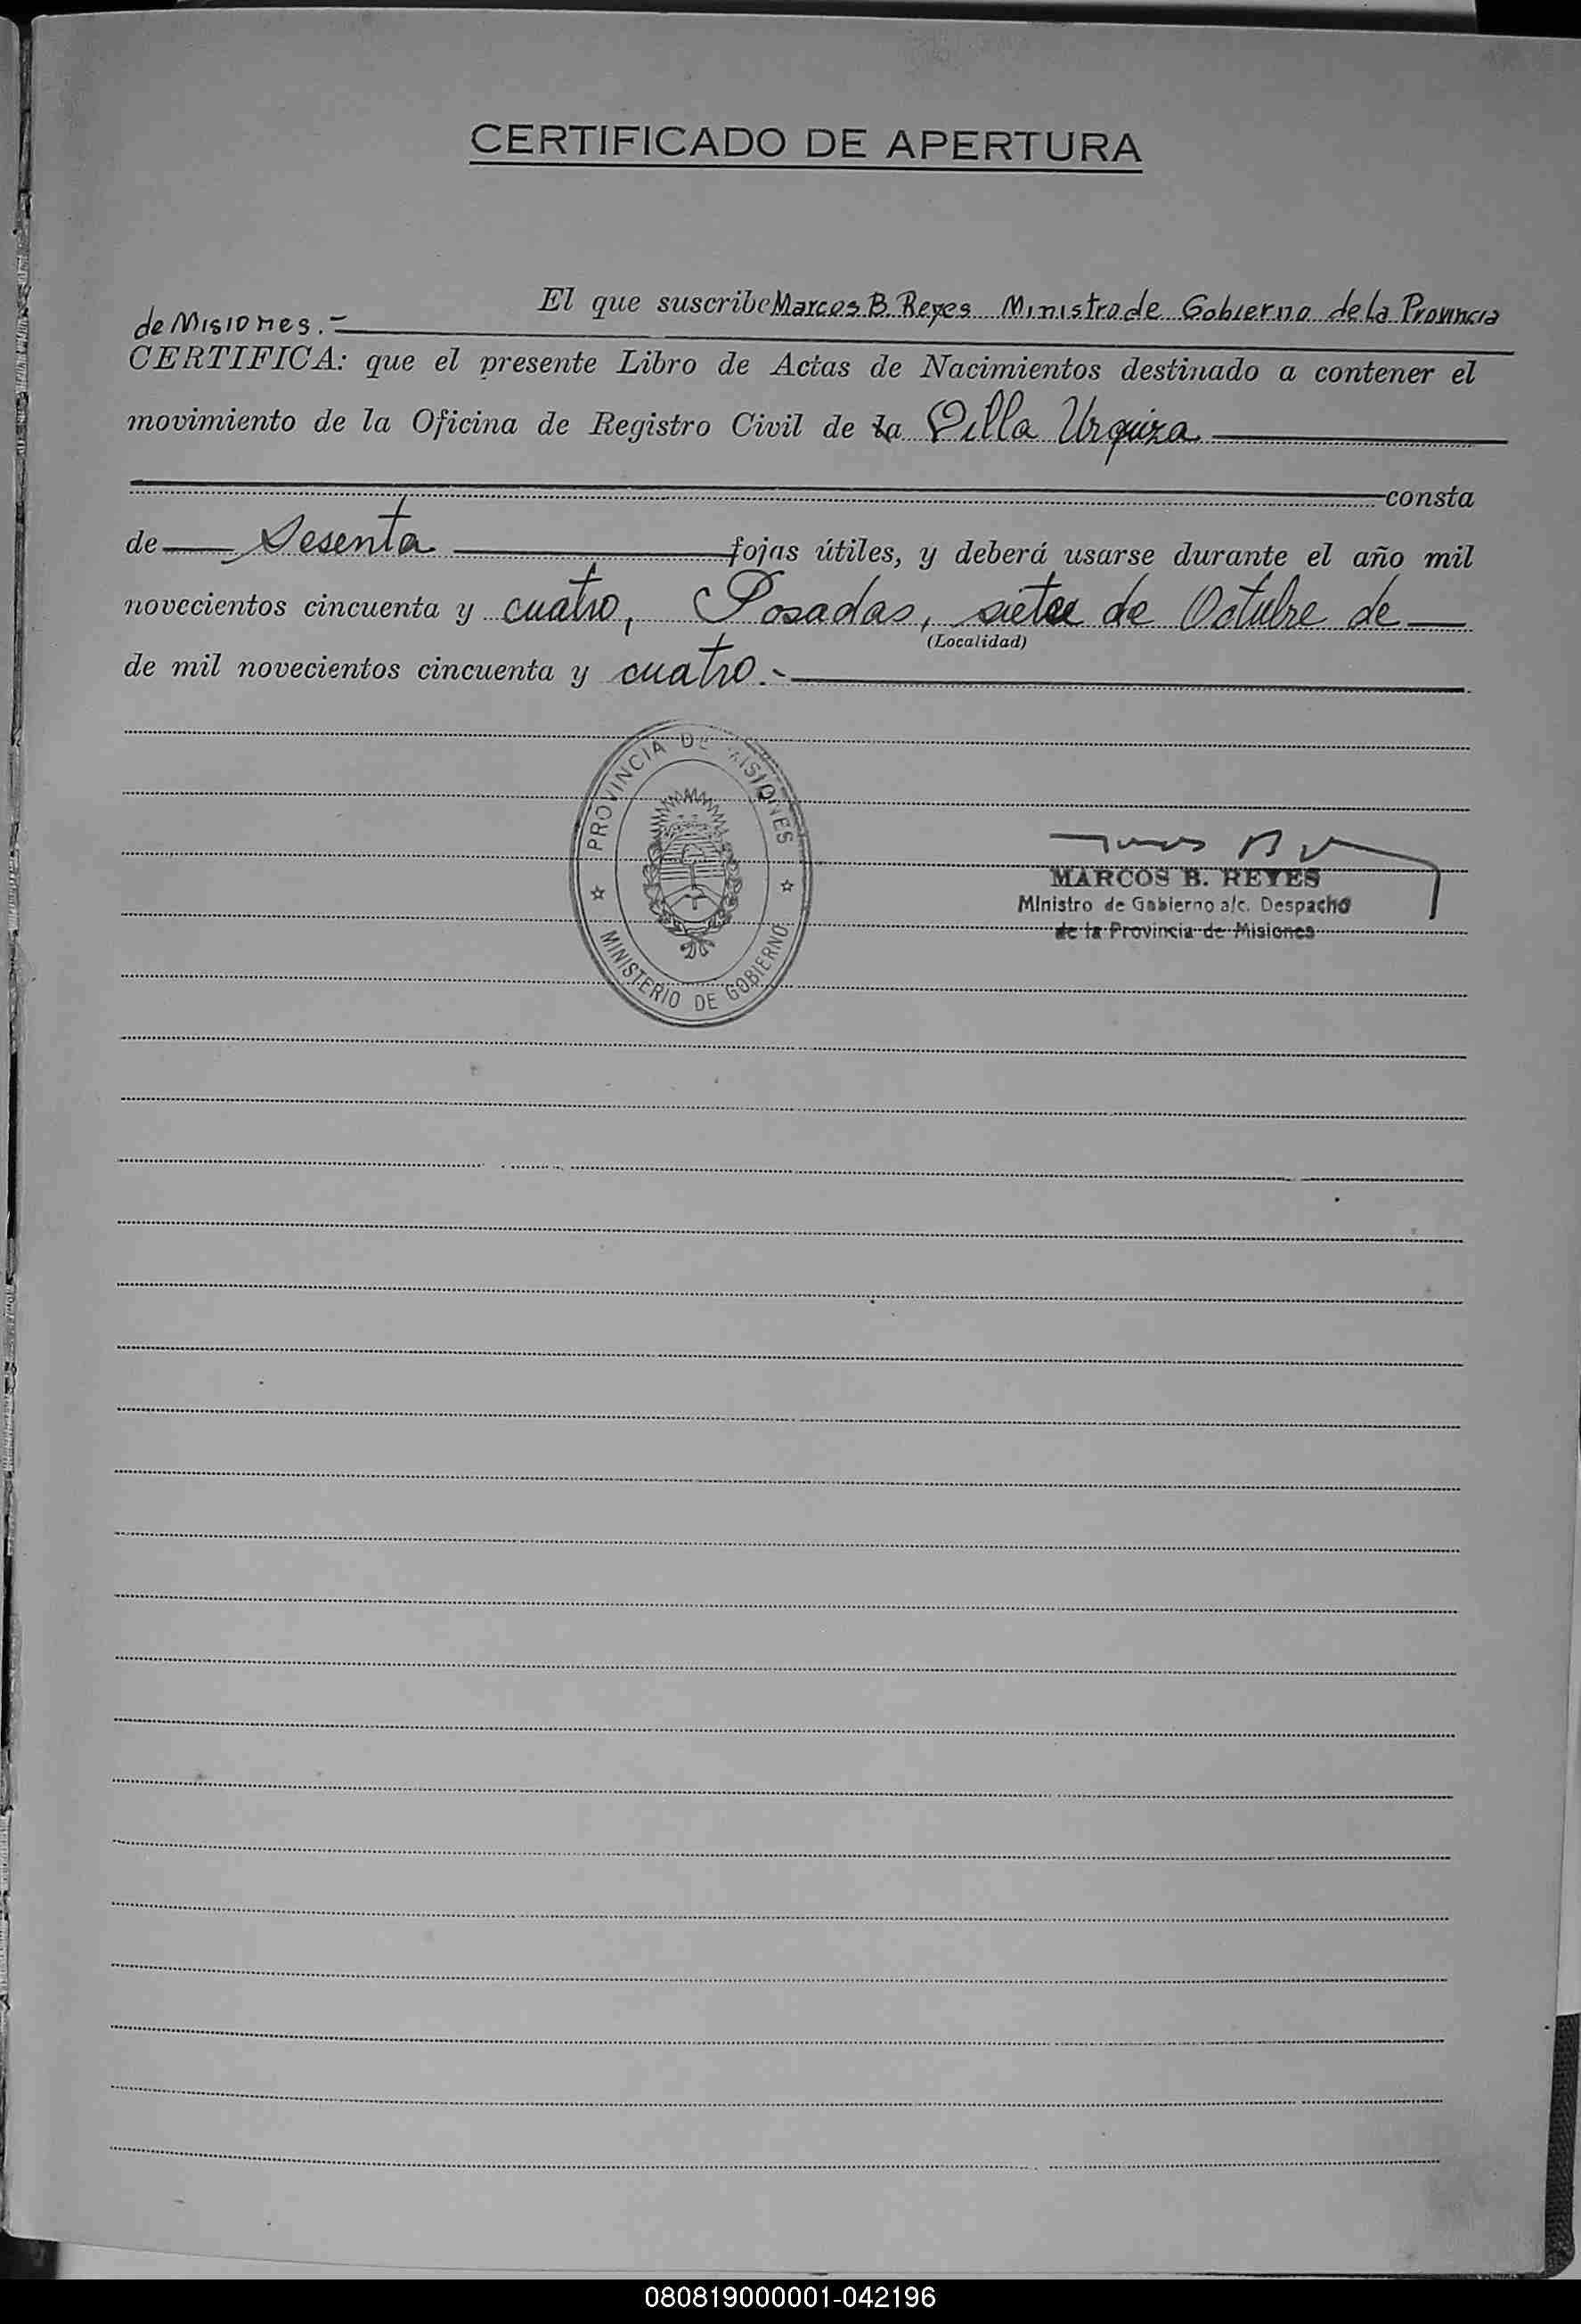 CERTIFICADO DE APERTURA
El que suscribe Marcos B. Reyes Ministro de Gobierno de la Provincia
de Misiones.-
CERTIFICA: que el presente Libro de Actas de Nacimientos destinado a contener el
movimiento de la Oficina de Registro Civil de la Villa Urquiza
consta
de Sesenta fojas útiles, y deberá usarse durante el año mil
novecientos cincuenta y cuatro, Posadas, siete de Octubre de
(Localidad)
de mil novecientos cincuenta y cuatro.-
PROVINCIA DE MISIONES
MINISTERIO DE GOBIERNO
MARCOS B. REYES
Ministro de Gobierno a/c. Despacho
de la Provincia de Misiones
080819000001-042196